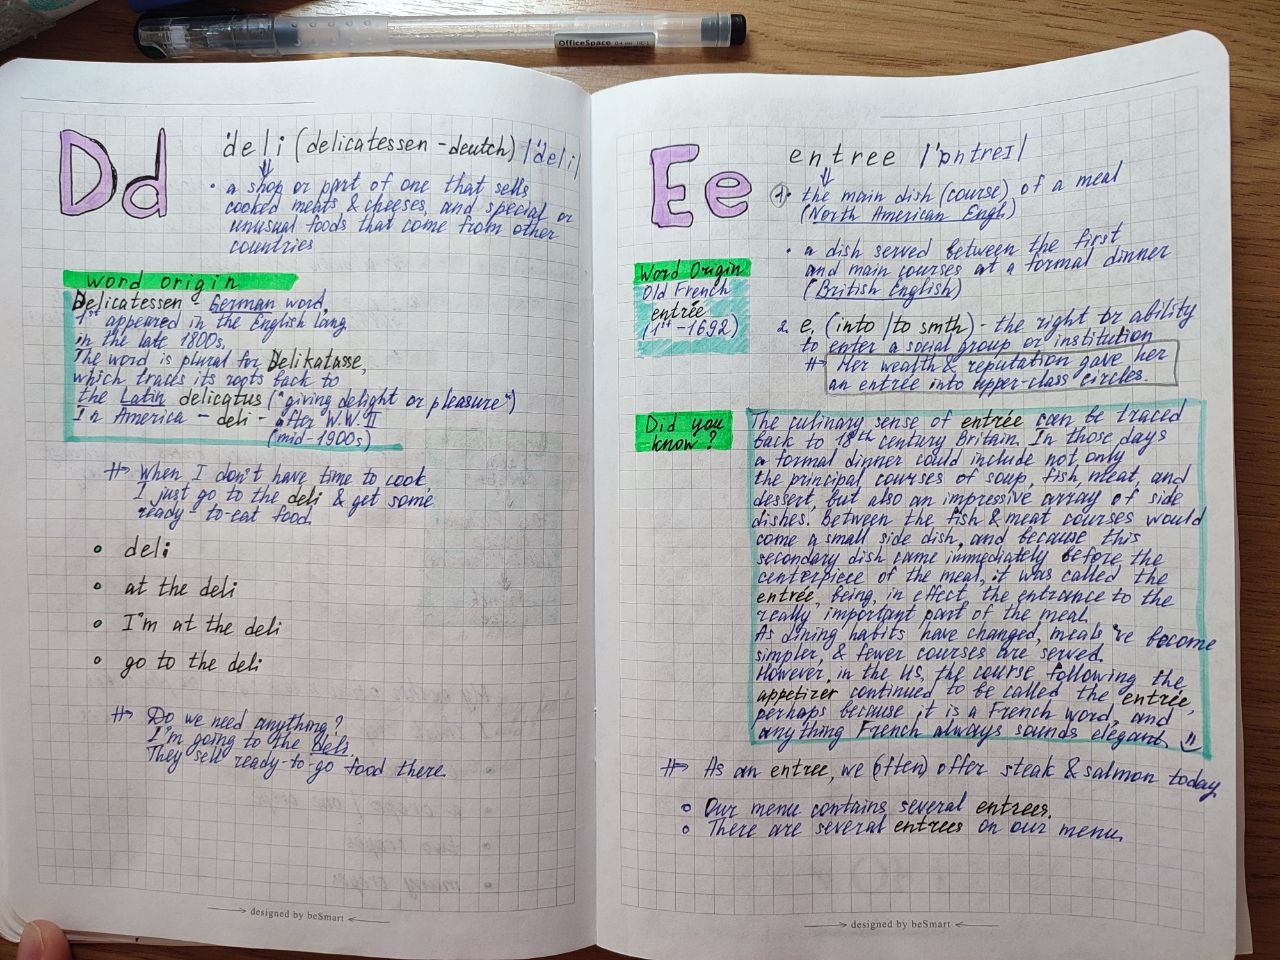 OfficeSpace
Dd
deli (delicatessen - deutch) |ˈdeli|
• a shop or part of one that sells
cooked meats & cheeses, and special or
unusual foods that come from other
countries
word origin
Delicatessen - German word,
1st appeared in the English lang
in the late 1800s,
The word is plural for Delikatasse,
which traces its roots back to
the Latin delicatus ("giving delight or pleasure")
In America - deli - after W.W. II
(mid-1900s)
When I don't have time to cook,
I just go to the deli & get some
ready-to-eat food.
deli
at the deli
I'm at the deli
go to the deli
Do we need anything?
I'm going to the deli.
They sell ready-to-go food there.
designed by beSmart
Ee
entree |ˈɒntreɪ|
1. the main dish (course) of a meal
(North American Engl.)
• a dish served between the first
and main courses at a formal dinner
(British English)
Word Origin
Old French
entrée
(1st - 1692)
2. e. (into | to smth) - the right or ability
to enter a social group or institution
Her wealth & reputation gave her
an entrée into upper-class circles.
Did you
know?
The culinary sense of entrée can be traced
back to 18th century Britain. In those days
a formal dinner could include not only
the principal courses of soup, fish, meat, and
dessert, but also an impressive array of side
dishes. Between the fish & meat courses would
come a small side dish, and because this
secondary dish came immediately before the
centerpiece of the meal, it was called the
entrée, being, in effect, the entrance to the
really important part of the meal.
As dining habits have changed, meals 've become
simpler, & fewer courses are served.
However, in the US, the course following the
appetizer continued to be called the entrée,
perhaps because it is a French word, and
anything French always sounds elegant.
As an entree, we (often) offer steak & salmon today.
Our menu contains several entrees.
There are several entrees on our menu.
designed by beSmart